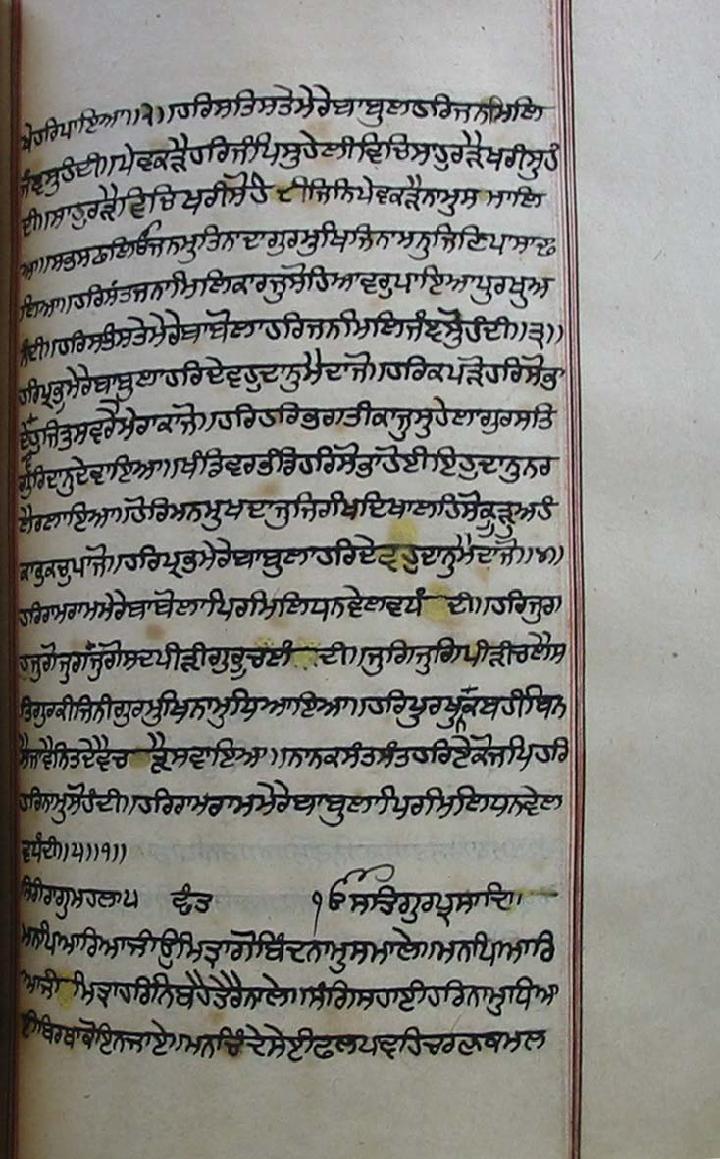 ਖੇਹਰਿਪਾਇਆ॥੨॥ਹਰਿਸਤਿਸਤੇਮੇਰੇਬਾਬੁਲਾਹਰਿਜਨਮਿਲਿ
ਜੰਞਸੁਹੰਦੀ॥ਪੇਵਕੜੈਹਰਿਜੰਪਿਸੁਹੇਲੀਵਿਚਿਸਾਹੁਰੜੈਖਰੀਸੁਹੰ
ਦੀ॥ਸਾਹੁਰੜੈਵਿਚਿਖਰੀਸੋਹੰਦੀਜਿਨਿਪੇਵਕੜੈਨਾਮੁਸਮਾਲਿ
ਆ॥ਸਭੁਸਫਲਿਓਜਨਮੁਤਿਨਾਦਾਗੁਰਮੁਖਿਜਿਨਾਮਨੁਜਿਣਿਪਾਸਾਢਾ
ਲਿਆ॥ਹਰਿਸੰਤਜਨਾਮਿਲਿਕਾਰਜੁਸੋਹਿਆਵਰੁਪਾਇਆਪੁਰਖੁਅ
ਨੰਦੀ॥ਹਰਿਸਤਿਸਤੇਮੇਰੇਬਾਬੋਲਾਹਰਿਜਨਮਿਲਿਜੰਞਸੋੁਹੰਦੀ॥੩॥
ਹਰਿਪ੍ਰਭੁਮੇਰੇਬਾਬੁਲਾਹਰਿਦੇਵਹੁਦਾਨੁਮੈਦਾਜੋ॥ਹਰਿਕਪੜੋਹਰਿਸੋਭਾ
ਦੇਵਹੁਜਿਤੁਸਵਰੈਮੇਰਾਕਾਜੋ॥ਹਰਿਹਰਿਭਗਤੀਕਾਜੁਸੁਹੇਲਾਗੁਰਸਤਿ
ਗੁਰਿਦਾਨੁਦੇਵਾਇਆ॥ਖੰਡਿਵਰਭੰਡਿਹਰਿਸੋਭਾਹੋਈਇਹੁਦਾਨੁਨਰ
ਲੈਰਲਾਇਆ॥ਹੋਰਿਮਨਮੁਖਦਾਜੁਜਿਰਖਿਦਿਖਾਲਹਿਸੋਕੂੜੁਅਹੰ
ਕਾਰੁਕਚੁਪਾਜੋ॥ਹਰਿਪ੍ਰਭਮੇਰੇਬਾਬੁਲਾਹਰਿਦੇਵਹੁਦਾਨੁਮੈਦਾਜੋ॥੪॥
ਹਰਿਰਾਮਰਾਮਮੇਰੇਬਾਬੋਲਾਪਿਰਮਿਲਿਧਨਵੇਲਵਧੰਦੀ॥ਹਰਿਜੁਗ
ਹਜੁਗੋਜੁਗਜੁਗੋਸਦਪੀੜੀਗੁਰੂਚਲੰਦੀ॥ਜੁਗਿਜੁਗਿਪੀੜੀਚਲੈਸ
ਤਿਗੁਰਕੀਜਿਨੀਗੁਰਮੁਖਿਨਾਮੁਧਿਆਇਆ॥ਹਰਿਪੁਰਖੁਨਕਬਹੀਬਿਨ
ਸੈਜਾਵੈਨਿਤਦੇਵੈਚੜੈਸਵਾਇਆ॥ਨਾਨਕਸੰਤਸੰਤਹਰਿਏਕੋਜਪਿਹਰਿ
ਹਰਿਨਾਮੁਸੋਹੰਦੀ॥ਹਰਿਰਾਮਰਾਮਮੇਰੇਬਾਬੁਲਾਪਿਰਮਿਲਿਧਨਵੇਲ
ਵਧੰਦੀ॥੫॥੧॥
ਸਿਰੀਰਾਗੁਮਹਲਾ੫ ਛੰਤ ੧ਓਸਤਿਗੁਰਪ੍ਰਸਾਦਿ
ਮਨਪਿਆਰਿਆਜੀਉਮਿਤ੍ਰਾਗੋਬਿੰਦਨਾਮੁਸਮਾਲੇ॥ਮਨਪਿਆਰਿ
ਆਜੀਮਿਤ੍ਰਾਹਰਿਨਿਬਹੈਤੇਰੈਨਾਲੇ॥ਸੰਗਿਸਹਾਈਹਰਿਨਾਮੁਧਿਆ
ਈਬਿਰਥਾਕੋਇਨਜਾਏ॥ਮਨਚਿੰਦੇਸੇਈਫਲਪਾਵਹਿਚਰਣਕਮਲ